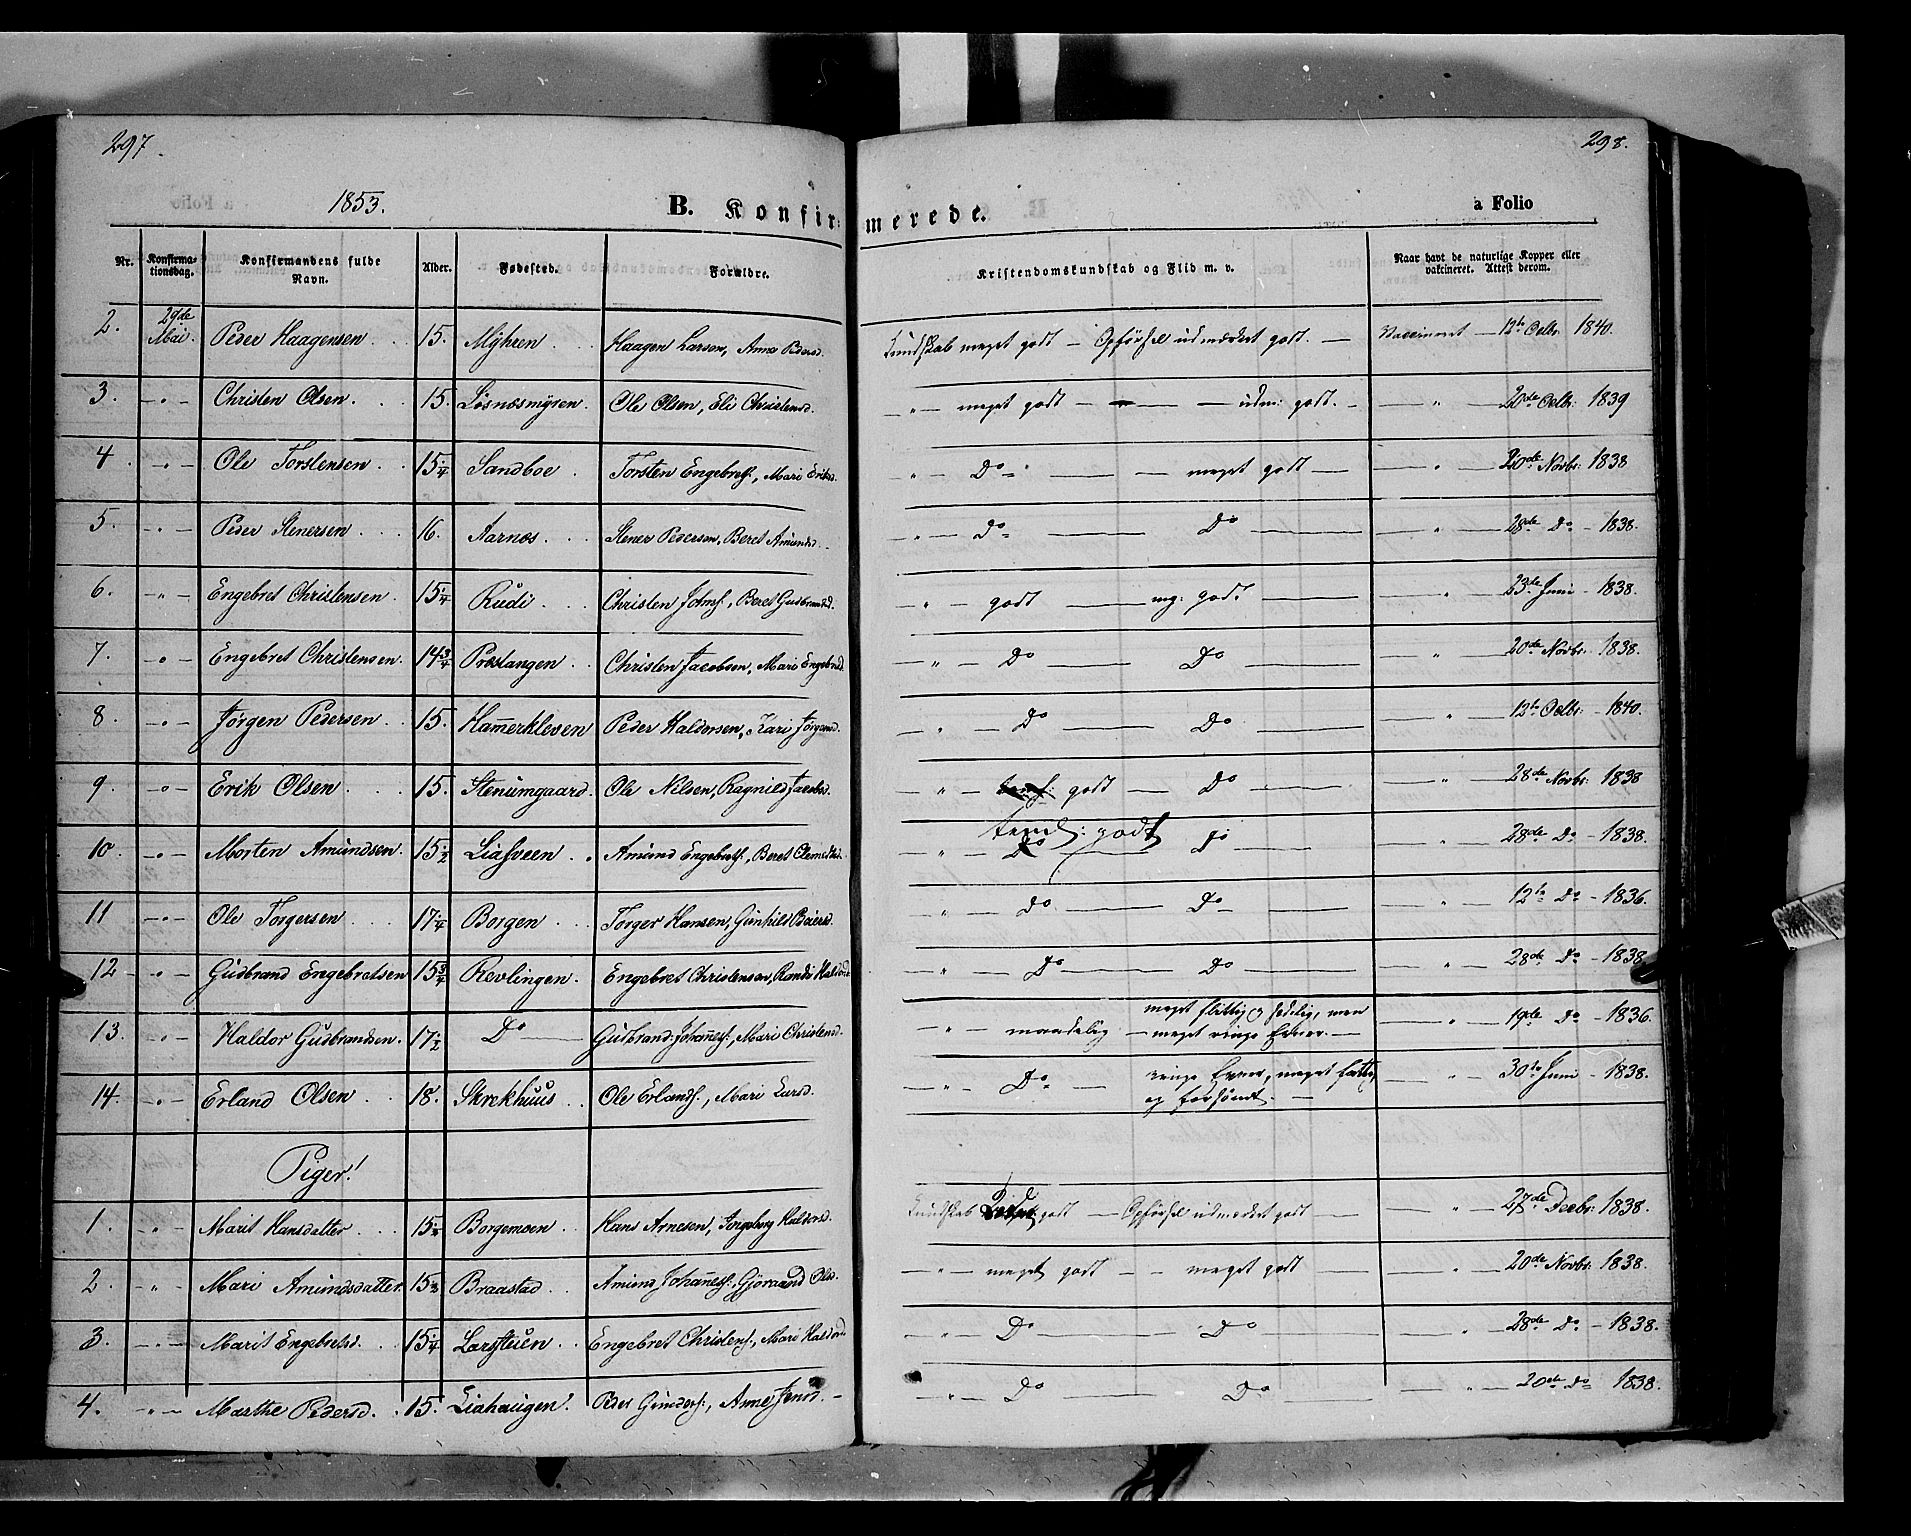 297. 298.
1853. B. Konfirmerede. a Folio
Nr. Konfirmationsdag. Konfirmandens fulde Navn. Alder. Fødested. Forældre. Kristendomskundskab og Flid m. v. Naar havt de naturlige Kopper eller vaktineret. Attest derom.
2. 29de Mai. Peder Haagensen 15. Myhren Haagen Larsen, Anne Pedersd. Kundskab meget godt — Opførsel udmærket godt. — Vaccineret — 12te Octbr. 1840.
3. — " — Christen Olsen. 15. Losnæsmyren. Ole Olsen, Eli Christensd. — " — meget godt — — udm: godt. — " — 20de Octbr: 1839
4. — " — Ole Torstensen 15 1/4 Sandboe Torsten Engebrets., Mari Eriksd. — " — Do — meget godt — " — 20de Novbr: 1838
5. — " — Peder Stenersen 16. Aarnæs Stener Pedersen, Beret Amundsd. — " — Do Do — " — 28de Do — 1838.
6. — " — Engebret Christensen 15 1/4 Rudi Christen Johns., Beret Gudbrandsd. — " — godt — mg: godt — " — 23de Juni — 1838.
7. — " — Engebret Christensen. 14 3/4 Præstangen Christen Jacobsen, Mari Engebretsd. — " — Do Do — " — 20de Novbr: 1838.
8. — " — Jörgen Pedersen 15. Hamerkleven Peder Haldorsen, Kari Jörgensd. — " — Do Do — " — 12te Octbr: — 1840.
9. — " — Erik Olsen 15. Stenumgaard. Ole Nilsen, Ragnild Jacobsd. — " — godt — Do — " — 28de Novbr: 1838
10. — " — Morten Amundsen. 15 1/2 Liasveen Amund Engebrets., Beret Clemetsd. — " — temd: godt Do Do — " — 28de Do — 1838.
11 — " — Ole Torgersen 17 1/4 Borgen Torger Hansen, Gunhild Pedersd. — " — Do Do — " — 12te Do — 1836.
12 — " — Gudbrand Engebretsen 15 3/4 Revlingen. Engebret Christensen, Randi Haldorsd. — " — Do Do — " — 28de Do — 1838.
13. — " — Haldor Gudbrandsen. 17 1/2 Do Gudbrand Johannes., Mari Christensd. — " — maadelig — meget flittig og sædelig, men — meget ringe Evner. — " — 19de Do — 1836.
14. — " — Erland Olsen 18. Skrekhuus Ole Erlands., Mari Larsd. — " — Do — ringe Evner, meget fattig, og forsömt. — " — 30te Juni — 1838.
Piger!
1. — " — Marit Hansdatter 15 1/2 Borgemoen Hans Arnesen, Ingeborg Haldorsd. Kundskab godt — Opførsel udmærket godt — " — 27de Decbr: 1838.
2. — " — Mari Amundsdatter 15 Braastad Amund Johannes., Gjøraand Olsd. — " — meget godt — meget godt — " — 20de Novbr: 1838.
3. — " — Marit Engebretsd. 15 1/4 Larsstuen Engebret Christens., Mari Haldorsd. — " — Do Do — " — 28de Do — 1838.
4. — " — Marthe Pedersd. 15. Liahaugen. Peder Gunders., Anne Jensd. — " — Do Do — " — 20de Do 1838.